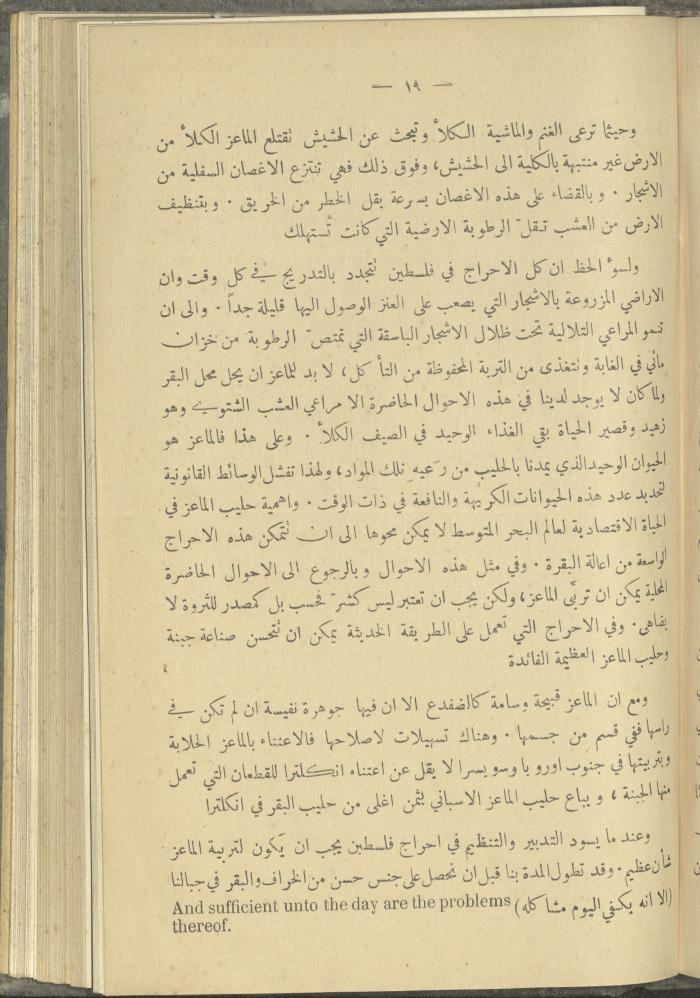 — ١٩ —
وحيثما ترعى الغنم والماشية الكلأ وتبحث عن الحشيش تقتلع الماعز الكلأ من
الارض غير منتبهة بالكلية الى الحشيش، وفوق ذلك فهي تنتزع الاغصان السفلية من
الاشجار · وبالقضاء على هذه الاغصان بسرعة يقل الخطر من الحريق · وبتنظيف
الارض من العشب تقلّ الرطوبة الارضية التي كانت تُستهلك
ولسوء الحظ ان كل الاحراج في فلسطين تتجدد بالتدريج في كل وقت وان
الاراضي المزروعة بالاشجار التي يصعب على العنز الوصول اليها قليلة جداً · والى ان
تنمو المراعي التلالية تحت ظلال الاشجار الباسقة التي تمتصّ الرطوبة من خزان
مائي في الغابة وتتغذى من التربة المحفوظة من التأكل، لا بد للماعز ان يحل محل البقر
ولما كان لا يوجد لدينا في هذه الاحوال الحاضرة الا مراعي العشب الشتوي وهو
زهيد وقصير الحياة بقي الغذاء الوحيد في الصيف الكلأ · وعلى هذا فالماعز هو
الحيوان الوحيد الذي يمدنا بالحليب من رَعيهِ تلك المواد، ولهذا تفشل الوسائط القانونية
لتحديد عدد هذه الحيوانات الكريهة والنافعة في ذات الوقت · واهمية حليب الماعز في
الحياة الاقتصادية لعالم البحر المتوسط لا يمكن محوها الى ان تتمكن هذه الاحراج
الواسعة من اعالة البقرة · وفي مثل هذه الاحوال وبالرجوع الى الاحوال الحاضرة
المحلية يمكن ان تربّى الماعز، ولكن يجب ان تعتبر ليس كشرّ فحسب بل كمصدر للثروة لا
يضاهى · وفي الاحراج التي تعمل على الطريقة الحديثة يمكن ان تتحسن صناعة جبنة
وحليب الماعز العظيمة الفائدة
ومع ان الماعز قبيحة وسامة كالضفدع الا ان فيها جوهرة نفيسة ان لم تكن في
راسها ففي قسم من جسمها · وهناك تسهيلات لاصلاحها فالاعتناء بالماعز الحلابة
وبتربيتها في جنوب اوروبا وسويسرا لا يقل عن اعتناء انكلترا للقطعان التي تعمل
منها الجبنة، ويباع حليب الماعز الاسباني بثمن اغلى من حليب البقر في انكلترا
وعند ما يسود التدبير والتنظيم في احراج فلسطين يجب ان يكون لتربية الماعز
شأن عظيم · وقد تطول المدة بنا قبل ان نحصل على جنس حسن من الخراف والبقر في جبالنا
(الا انه يكفي اليوم مشاكله) And sufficient unto the day are the problems
thereof.